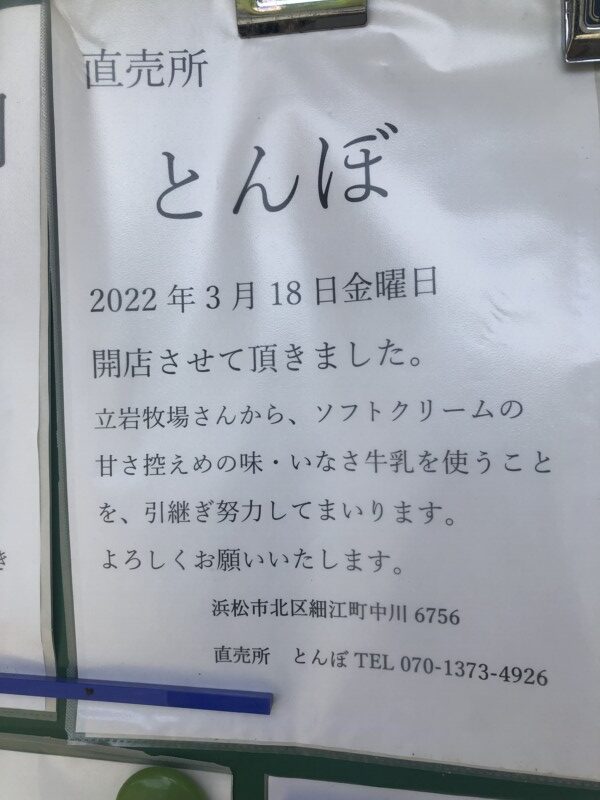 直売所
とんぼ
2022 年 3 月 18 日金曜日
開店させて頂きました。
立岩牧場さんから、ソフトクリームの
甘さ控えめの味・いなさ牛乳を使うこと
を、引継ぎ努力してまいります。
よろしくお願いいたします。
浜松市北区細江町中川 6756
直売所　とんぼ TEL 070-1373-4926
き